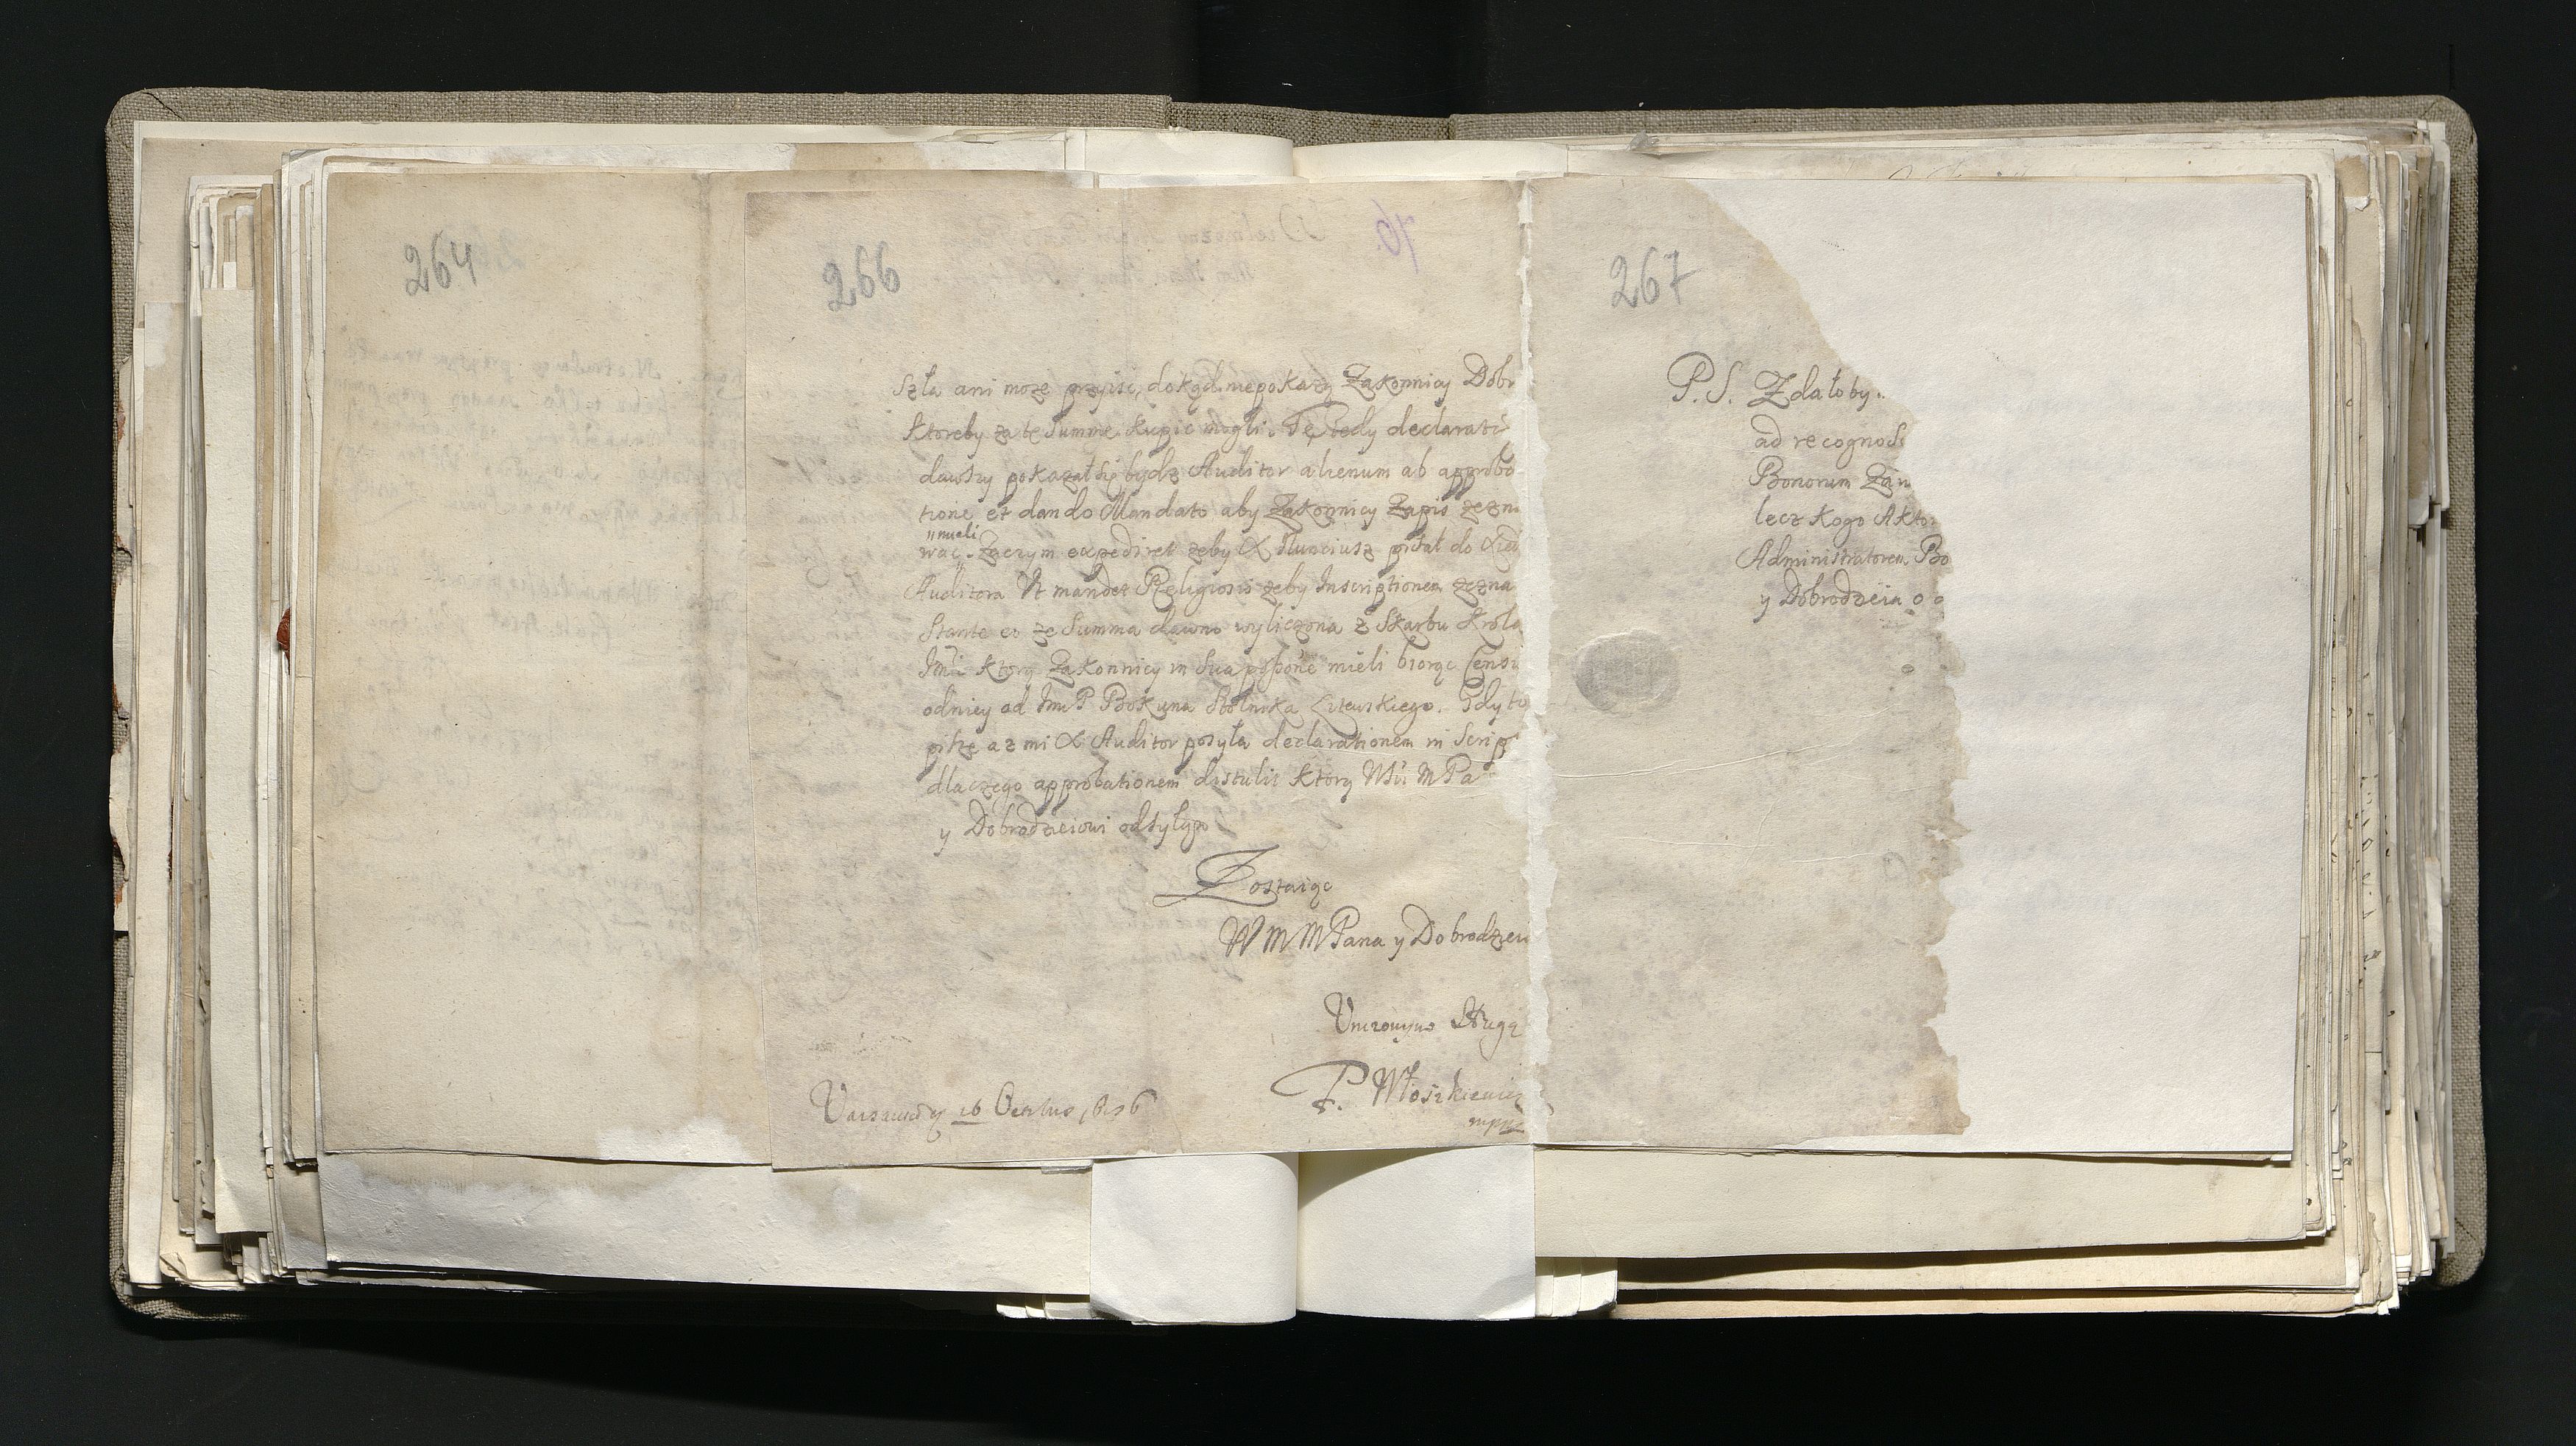 264
266
szła ani moze przyisc, dokąd niepokazą Zakonnicy Dobr
ktoreby za tę Summę kupic mogli. Tę tedy declarati
dawszy pokazał się bydz Auditor alienum ab approba
tione et dando Mandato aby Zakonnicy Zapis zezna
mieli
wac. Zaczym expediret zeby X Nunciusz pisał do Xiędza
Auditora Ut mandet Religiosis zeby Inscriptionem zezna
stante eo ze Summa dawno wyliczona z Skarbu Krola
Imci ktorą Zakonnicy in sua mieli biorąc Censu
od niey od ImP Bokuna Stolnika Litewskiego. Gdy to
piszę az mi X Auditor posyła declarationem in Scrip
dlaczego approbationem distulit ktorą M Pa
y Dobrodzieiowi odsyłąm
Zostaiąc
W M M Pana y Dobrodzieia
Unizonym Sługą
P. Włoszkiewicz
mppa
Varsaviæ 16 1696
267
P. S. Zdałoby
ad recognos
Bonorum Zan
lecz kogo Akto
Administratorem Bo
y Dobrodzieia o